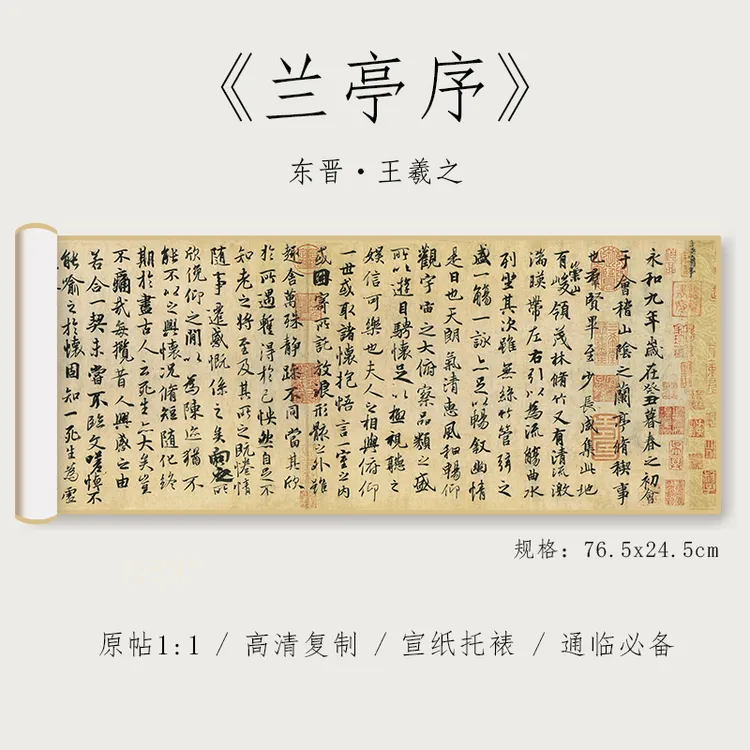 《兰亭序》
东晋·王羲之
永和九年歲在癸丑暮春之初會
于會稽山陰之蘭亭脩稧事
也群賢畢至少長咸集此地
有崇山峻領茂林脩竹又有清流激
湍暎帶左右引以為流觴曲水
列坐其次雖無絲竹管弦之
盛一觴一詠亦足以暢敘幽情
是日也天朗氣清惠風和暢仰
觀宇宙之大俯察品類之盛
所以遊目騁懷足以極視聽之
娛信可樂也夫人之相與俯仰
一世或取諸懷抱悟言一室之內
或因寄所託放浪形骸之外雖
趣舍萬殊靜躁不同當其欣
於所遇暫得於己怏然自足不
知老之將至及其所之既惓情
隨事遷感慨係之矣向之所
欣俛仰之間以為陳迹猶不
能不以之興懷況脩短隨化終
期於盡古人云死生亦大矣豈
不痛哉每攬昔人興感之由
若合一契未嘗不臨文嗟悼不
能喻之於懷固知一死生為虛
规格：76.5x24.5cm
原帖1:1 / 高清复制 / 宣纸托裱 / 通临必备